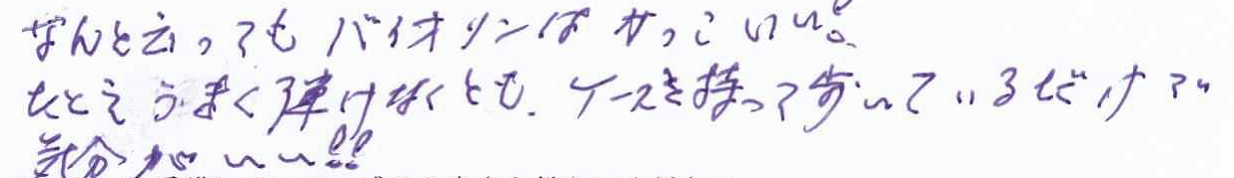 なんと云ってもバイオリンはかっこいい!。
たとえうまく弾けなくとも、ケースを持って歩いているだけで
気分がいい!!